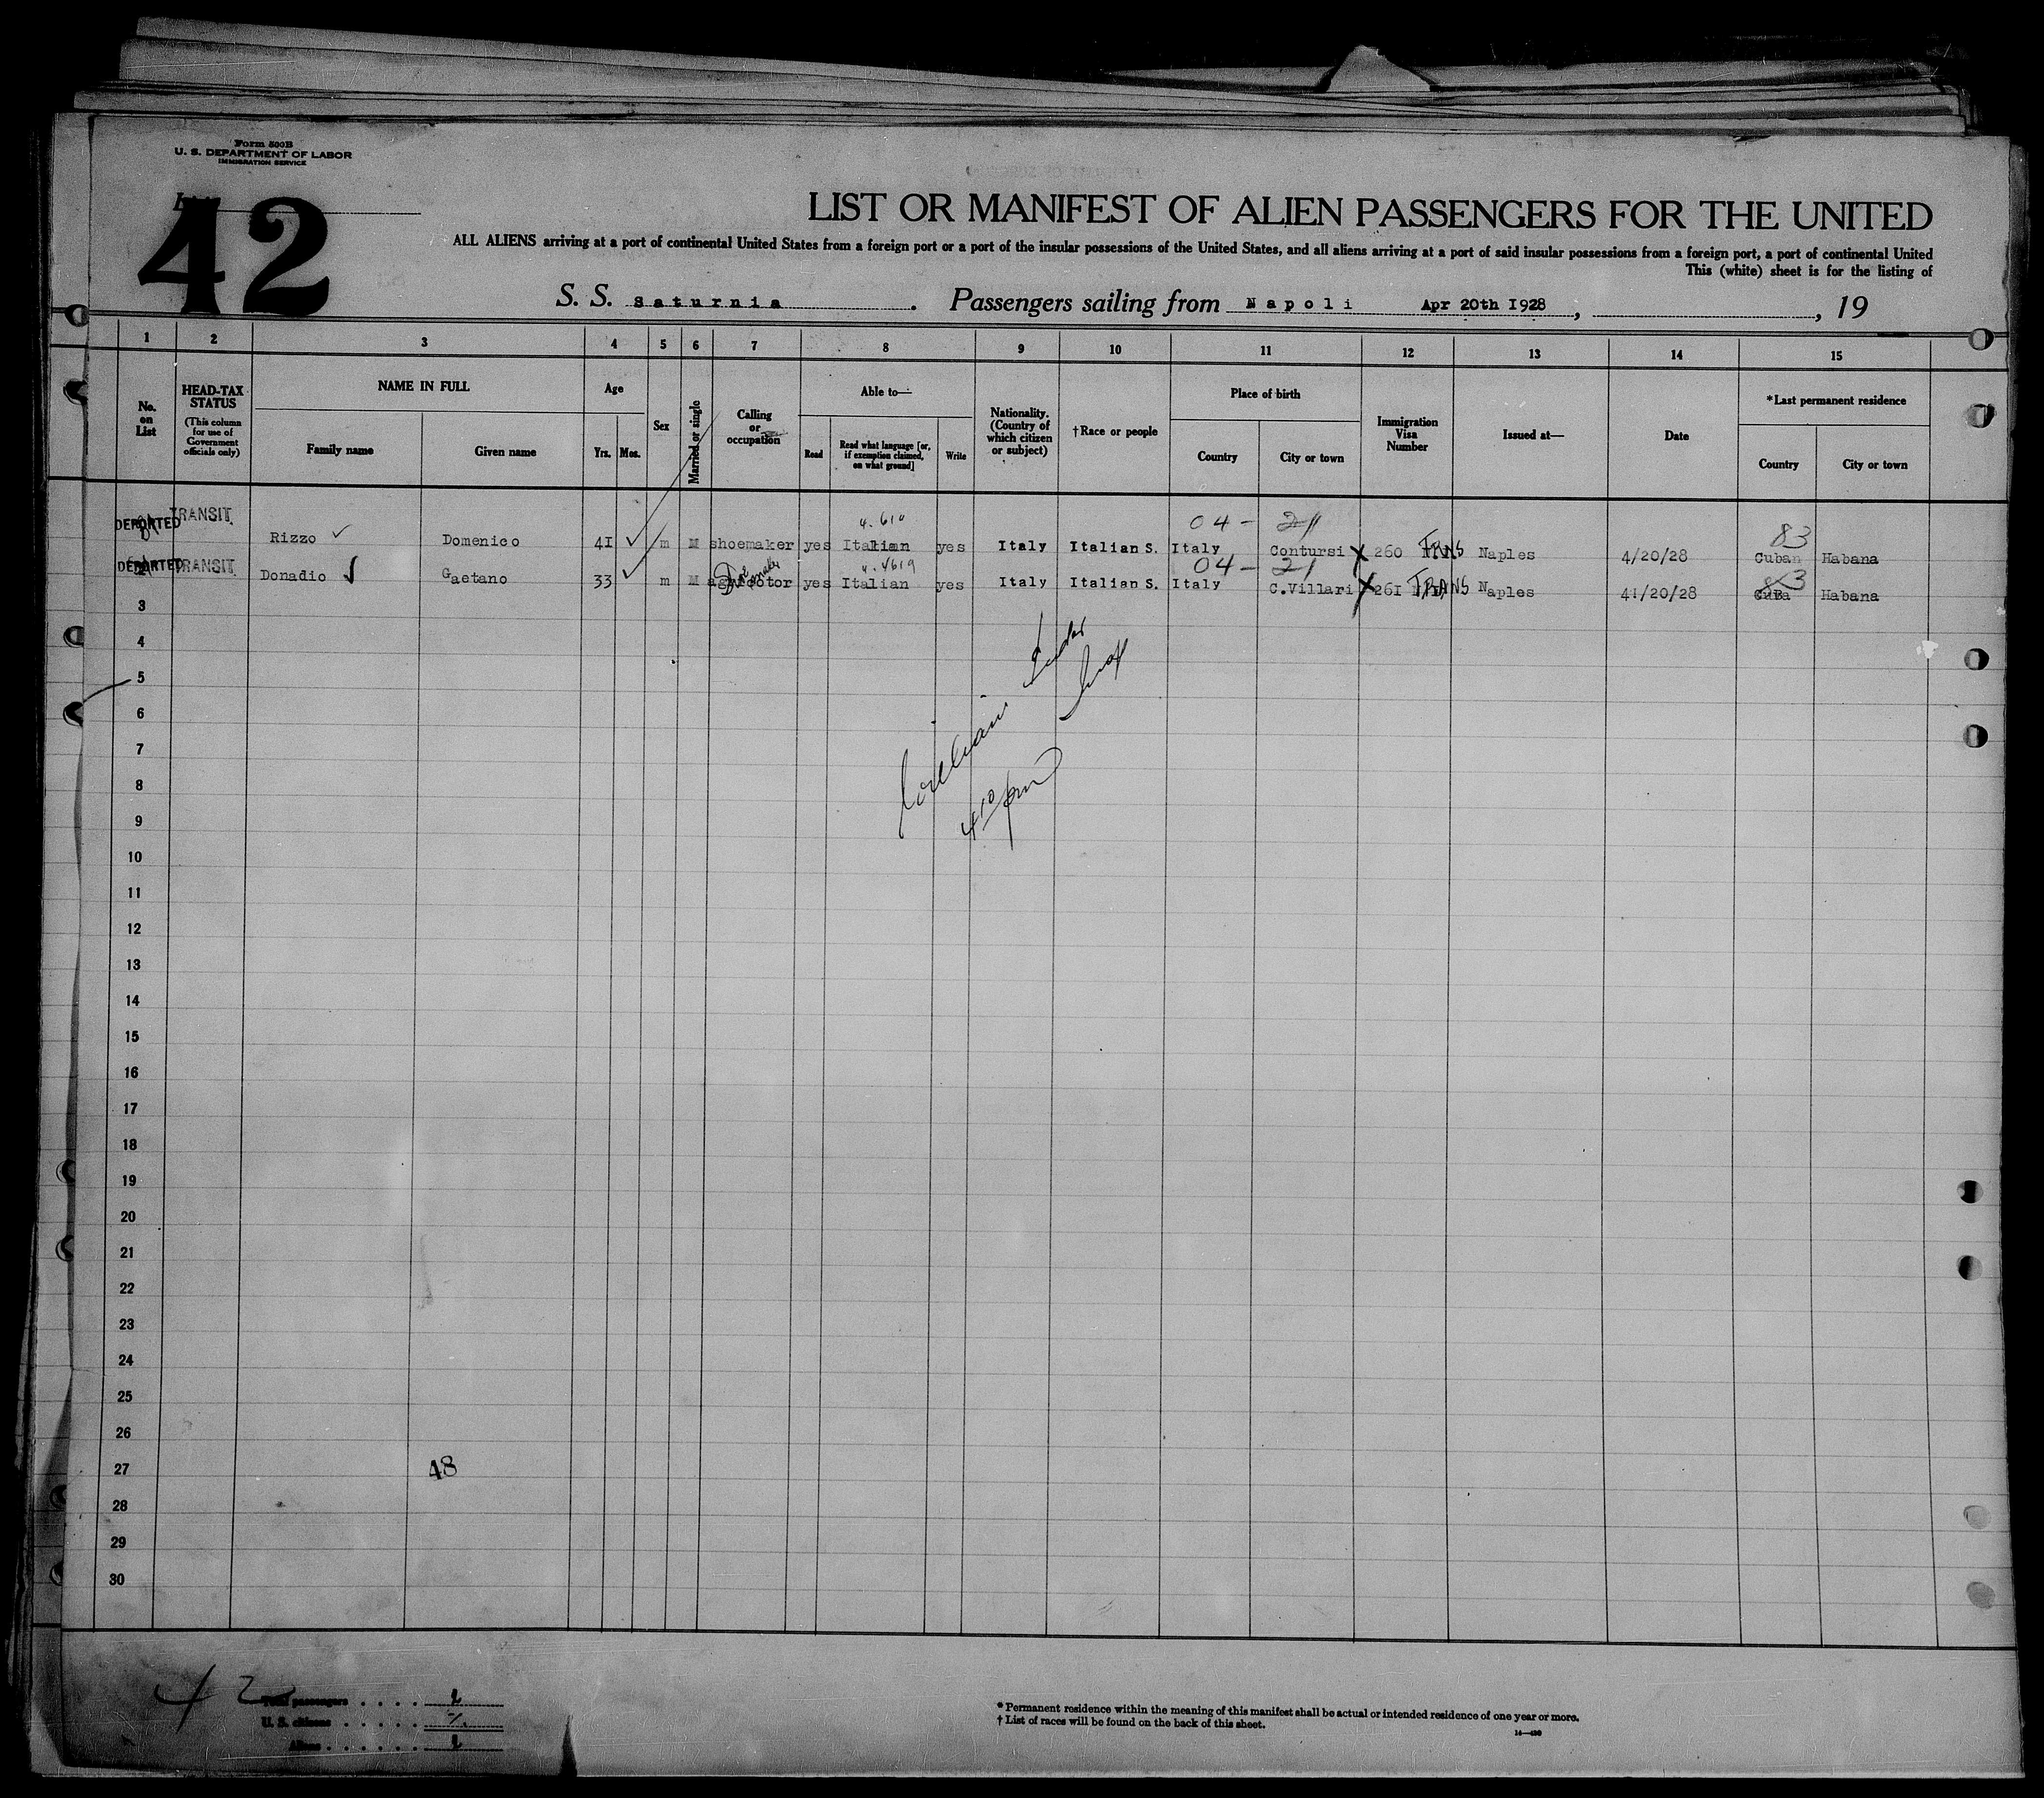 Form 500B
U. S. DEPARTMENT OF LABOR
IMMIGRATION SERVICE
42
LIST OR MANIFEST OF ALIEN PASSENGERS FOR THE UNITED
ALL ALIENS arriving at a port of continental United States from a foreign port or a port of the insular possessions of the United States, and all aliens arriving at a port of said insular possessions from a foreign port, a port of continental United
This (white) sheet is for the listing of
S. S. Saturnia. Passengers sailing from Napoli Apr 20th 1928, , 19
1 2 3 4 5 6 7 8 9 10 11 12 13 14 15
No. on List
HEAD-TAX STATUS (This column for use of Government officials only)
NAME IN FULL
Family name
Given name
Age
Yrs. Mos.
Sex
Married or single
Calling or occupation
Able to—
Read
Read what language [or, if exemption claimed, on what ground]
Write
Nationality. (Country of which citizen or subject)
†Race or people
Place of birth
Country
City or town
Immigration Visa Number
Issued at—
Date
*Last permanent residence
Country
City or town
4.610 04-21 83
DEPORTED TRANSIT Rizzo ✓ Domenico 41 ✓ m M shoemaker yes Italian yes Italy Italian S. Italy Contursi X 260 TRNS Naples 4/20/28 Cuban Habana
4.4619 04-21 83
DEPORTED TRANSIT Donadio ✓ Gaetano 33 ✓ m M yes Italian yes Italy Italian S. Italy C.Villari X 261 TRANS Naples 41/20/28 Cuba Habana
3
4
5
6
7
8
9
10
11
12
13
14
15
16
17
18
19
20
21
22
23
24
25
26
27 48
28
29
30
42
Total passengers . . . . 2
U. S. citizens . . . . .
Aliens . . . . . . 2
* Permanent residence within the meaning of this manifest shall be actual or intended residence of one year or more.
† List of races will be found on the back of this sheet.